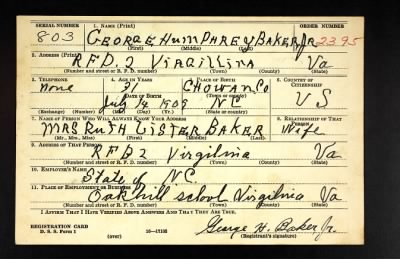 SERIAL NUMBER 1. NAME (Print) ORDER NUMBER
803 GEORGE HUMPHREY BAKER Jr. 2395
(First) (Middle) (Last)
2. ADDRESS (Print)
RFD. 2 VIRGILLINA Va
(Number and street or R. F. D. number) (Town) (County) (State)
3. TELEPHONE 4. AGE IN YEARS 5. PLACE OF BIRTH 6. COUNTRY OF CITIZENSHIP
None 31 CHOWAN CO
DATE OF BIRTH
July 14 1909 NC U S
(Exchange) (Number) (Mo.) (Day) (Yr.) (State or country)
7. NAME OF PERSON WHO WILL ALWAYS KNOW YOUR ADDRESS 8. RELATIONSHIP OF THAT PERSON
MRS RUTH LISTER BAKER Wife
(Mr., Mrs., Miss) (First) (Middle) (Last)
9. ADDRESS OF THAT PERSON
RFD 2 Virgilina Va
(Number and street or R. F. D. number) (Town) (County) (State)
10. EMPLOYER'S NAME
State of N.C.
11. PLACE OF EMPLOYMENT OR BUSINESS
Oak hill school Virgilina Va
(Number and street or R. F. D. number) (Town) (County) (State)
I AFFIRM THAT I HAVE VERIFIED ABOVE ANSWERS AND THAT THEY ARE TRUE.
REGISTRATION CARD George H. Baker Jr.
D. S. S. Form 1 (over) 16—17105 (Registrant's signature)